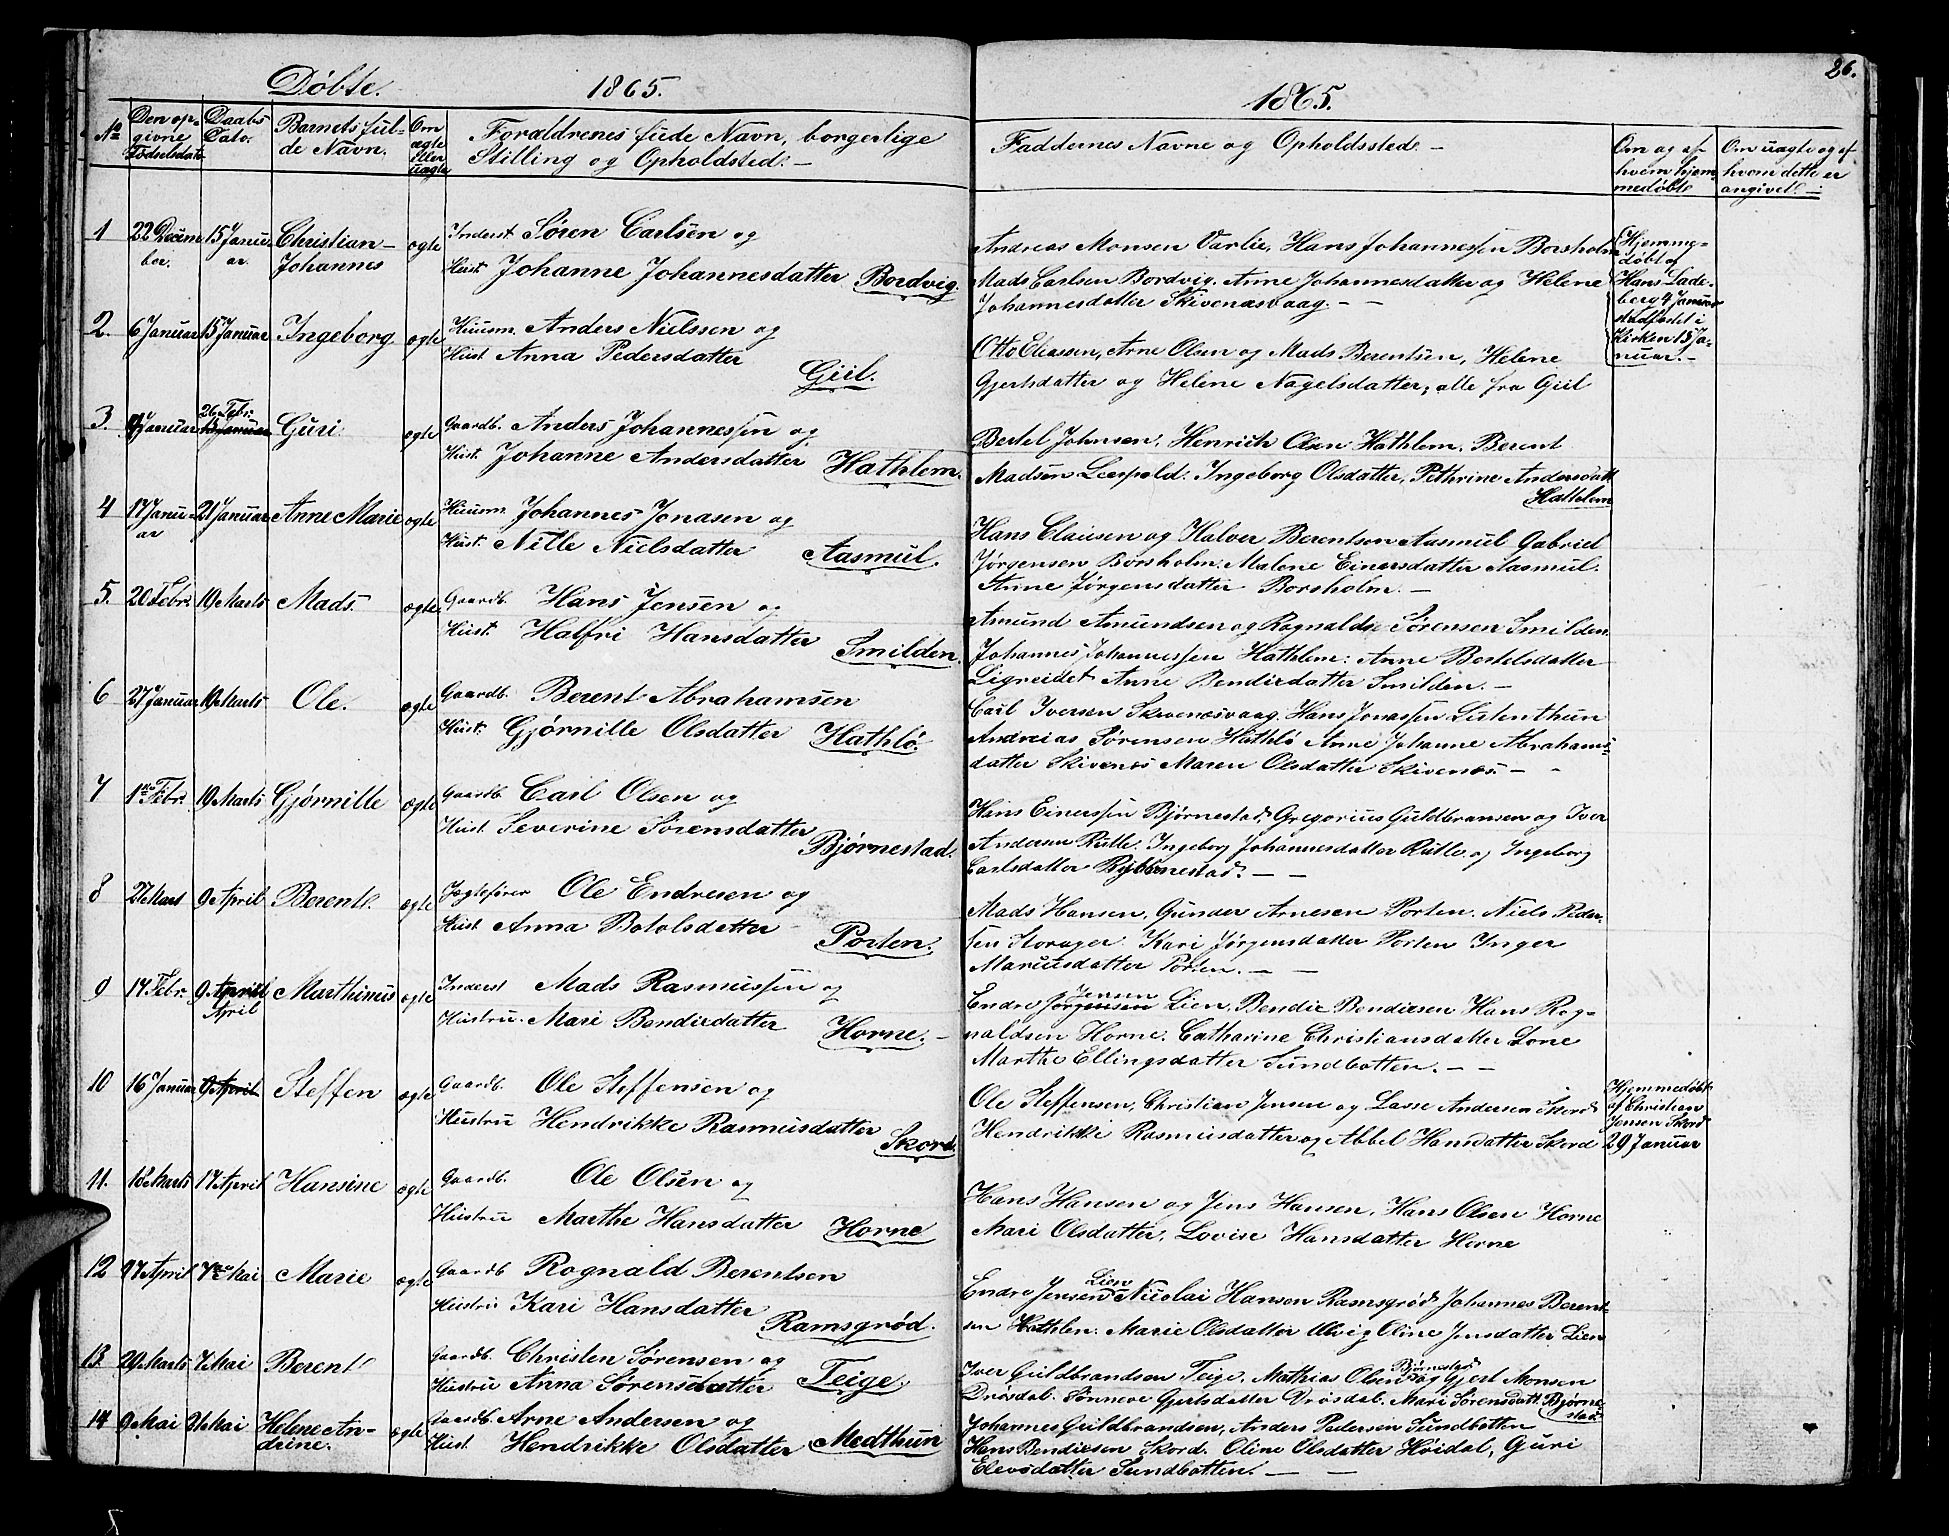 26.
Døbte. 1865. 1865.
No Den opgivne Fødselsdato Daabs Dato. Barnets fulde Navn. Om ægte eller uægte Forældrenes fude Navn, borgerlige Stilling og Opholdsted. — Faddernes Navne og Opholdssted. — Om og af hvem hjemmedøbt Om uægte og af hvem dette er angivet. —
1 22 Decem 15 Janu Christian- ægte Inderst Søren Carlsen og
ber. ar. Johannes Hust. Johanne Johannesdatter Bordvig.
Andreas Monsen Varlie, Hans Johannessen Borsholm
Mads Carlsen Bordvig. Anne Johannesdatter og Helene
Johannesdatter Skivenæsvaag. — —
Hjemme-
døbt af
Hans Lade-
berg 9 Januar
stadfæstet i
Kirken 15 Ja-
nuar. —
2. 6 Januar 15 Januar Ingeborg ægte Huusm. Anders Nielssen og
Hust. Anna Pedersdatter Giil.
Otto Eliassen, Arne Olsen og Mads Berentsen, Helene
Gjertsdatter og Helene Nagelsdatter, alle fra Giil
3 9 Januar 26 Febr. 15 Januar Guri ægte Gaardb. Anders Johannessen og
Hust. Johanne Andersdatter Hathlem.
Bertel Johnsen, Henrich Olsen Hathlem, Berent
Madsen Leerpold. Ingeborg Olsdatter, Pethrine Andersdatt
Hathlem
4 17 Janu- 21 Januar Anne Marie ægte Huusm. Johannes Jonasen og
ar Hust. Nille Nielsdatter Aasmul.
Hans Clausen og Halver Berentsen Aasmul Gabriel
Jørgensen Borsholm. Malene Einersdatter Aasmul.
Anne Jørgensdatter Borsholm. —
5. 20 Febr. 19 Marts Mads. ægte Gaardb. Hans Jensen og
Hust. Halfri Hansdatter Smilden.
Amund Amundsen og Rognald Sørensen Smilden
Johannes Johannessen Hathlem: Anne Bertelsdatter
Ligreidet Anne Bendixdatter Smilden. —
6 27 Januar 19 Marts Ole. ægte Gaardb. Berent Abrahamsen
Hust. Gjørnille Olsdatter Hathlø.
Carl Iversen Skivenæsvaag. Hans Jonassen Listenthun
Andreias Sørensen Hathlø Anne Johanne Abrahams-
datter Skivenæs Maren Olsdatter Skivenæs. — —
7 1ste Febr. 19 Marts Gjørnille ægte Gaardb. Carl Olsen og
Hust. Severine Sørensdatter Bjørnestad.
Hans Einersen Bjørnestad, Gregorius Guldbransen og Iver
Andersen Rutle. Ingeborg Johannesdatter Rutle og Ingeborg
Carlsdatter Bjørnestad. — —
8 27 Mart 9 April Berent. ægte Jægtefører Ole Endresen og
Hust. Anna Botolsdatter Porten.
Mads Hansen, Gunder Arnesen Porten. Niels Peder-
sen Storager. Kari Jørgensdatter Porten Inger
Mariusdatter Porten. — —
9 14 Febr. 9 April Marthinus ægte Inderst Mads Rasmussen og
April Hustru. Mari Bendixdatter Horne. —
Endre Jørgensen Jensen Lien, Bendix Bendixsen Hans Rog-
naldsen Horne. Catharine Christiansdatter Lone
Marthe Ellingsdatter Sundbotten. — —
10 16 Januar 9 April Steffen ægte Gaardb. Ole Steffensen og
Hustru Hendrikke Rasmusdatter Skord.
Ole Steffensen, Christian Jensen og Lasse Andersen Skord
Hendrikke Rasmusdatter og Abbel Hansdatter Skord
Hjemmedøbt
af Christian
Jensen Skord
29 Januar
11. 18 Marts 17 April Hansine ægte Gaardb. Ole Olsen og
Hustru Marthe Hansdatter Horne
Hans Hansen og Jens Hansen, Hans Olsen Horne
Mari Olsdatter, Lovise Hansdatter Horne
12 27 April 7de Mai Marie ægte Gaardb Rognald Berentsen
Hustru Kari Hansdatter Ramsgrød.
Endre Jensen Lien Nicolai Hansen Ramsgrød Johannes Berent-
sen Hathlen. Marie Olsdatter Ulvig Oline Jensdatter Lien
13. 29 Marts 7 Mai Berent ægte Gaardb. Christen Sørensen og
Hustru Anna Sørensdatter Teige.
Iver Guldbrandsen Teige. Mathias Olsen Bjørnestad og Gjert Monsen
Drøsdal. Sønneve Gjertsdatter Drøsdal. Mari Sørensdatt. Bjørne-
stad
14 9 Mai 21 Mai Helene An- ægte Gaardb. Arne Andersen og
drine. Hust. Hendrikke Olsdatter Medthun
Johannes Guldbrandsen, Anders Pedersen Sundbotten
Hans Bendixsen Skord. Oline Olsdatter Hovdal, Guri
Elevsdatter Sundbotten. — —